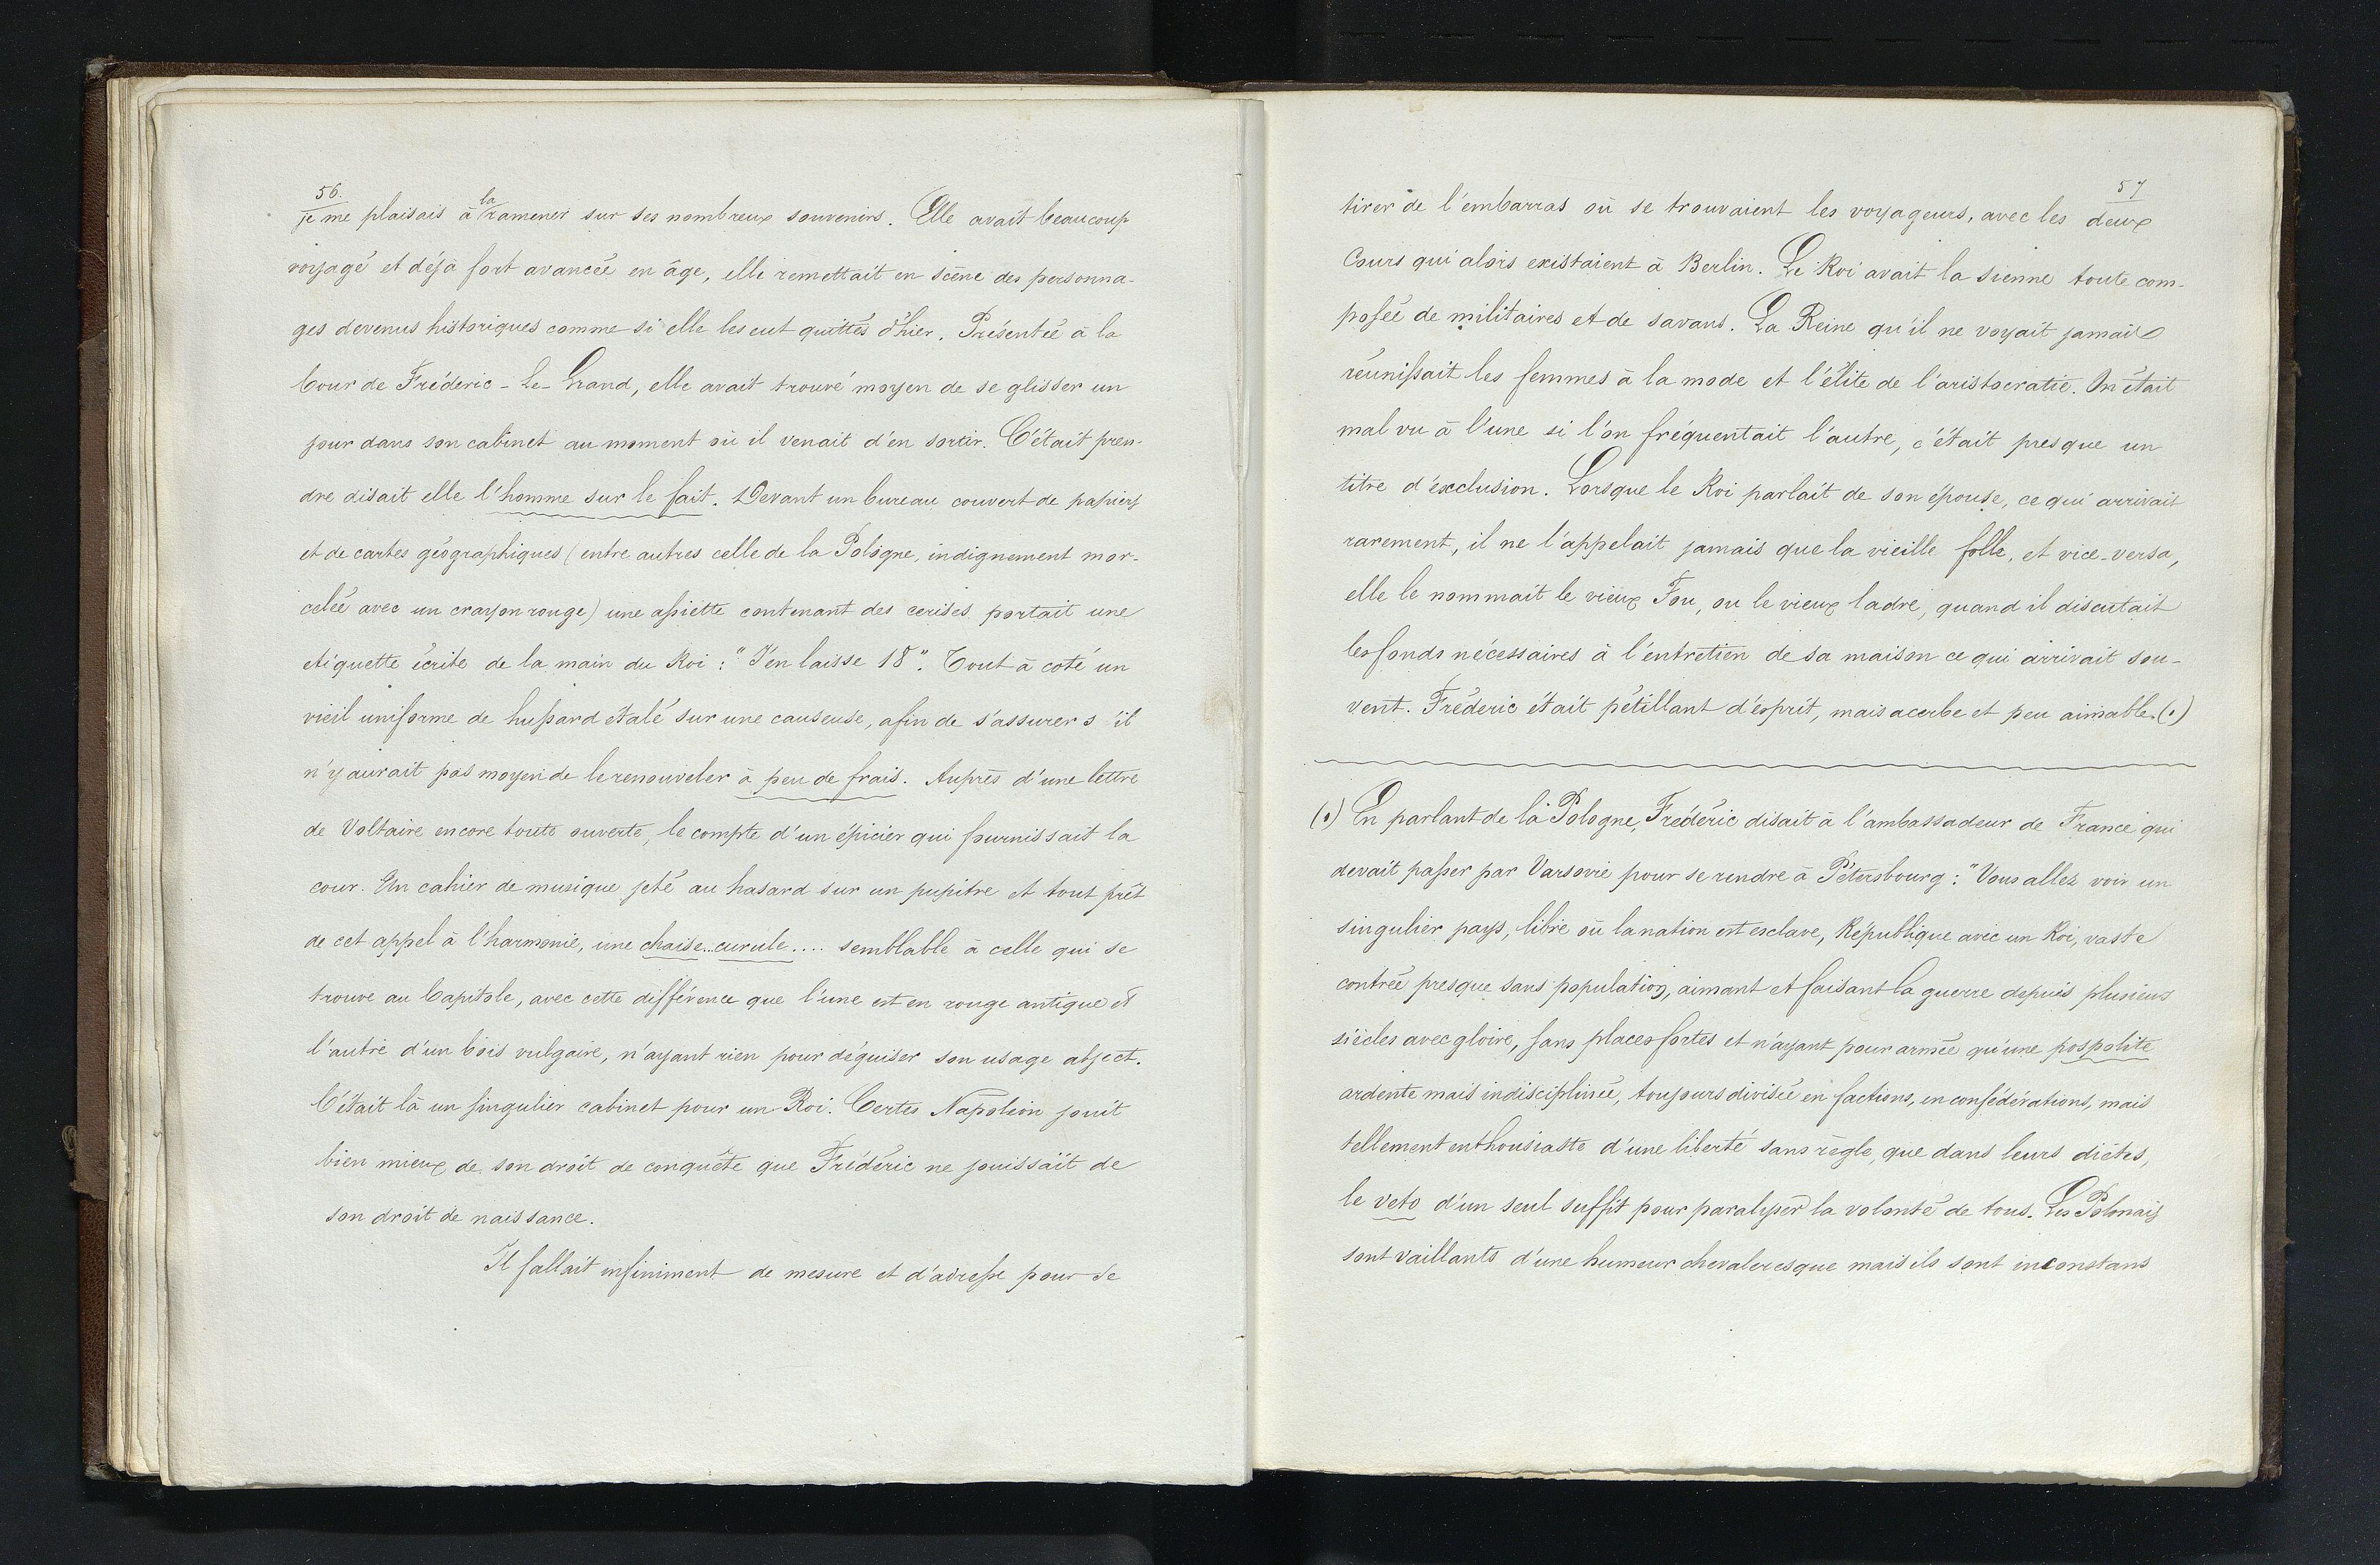 56.
je me plaisais à la ramener sur ses nombreux souvenirs. Elle avait beaucoup
voyagé et déjà fort avancée en âge, elle remettait en scène des personna-
ges devenus historiques comme si elle les eut quittés d'hier. Présentée à la
Cour de Fréderic-le-Grand, elle avait trouvé moyen de se glisser un
jour dans son cabinet au moment où il venait d'en sortir. C'était pren-
dre disait elle l'homme sur le fait. Devant un bureau couvert de papiers
et de cartes géographiques (entre autres celle de la Pologne, indignement mor-
celée avec un crayon rouge) une assiette contenant des cerises portait une
etiquette écrite de la main du Roi: "J'en laisse 18". Tout à coté un
vieil uniforme de hussard étalé sur une causeuse, afin de s'assurer s'il
n'y aurait pas moyen de le renouveler à peu de frais. Auprès d'une lettre
de Voltaire encore toute ouverte, le compte d'un épicier qui fournissait la
cour. Un cahier de musique jeté au hasard sur un pupitre et tout prêt
de cet appel à l'harmonie, une chaise...curule.... semblable à celle qui se
trouve au Capitole, avec cette différence que l'une est en rouge antique et
l'autre d'un bois vulgaire, n'ayant rien pour déguiser son usage abject.
C'était là un singulier cabinet pour un Roi. Certes Napoléon jouit
bien mieux de son droit de conquête que Fréderic ne jouissait de
son droit de naissance.
Il fallait infiniment de mesure et d'adresse pour se
57
tirer de l'embarras où se trouvaient les voyageurs, avec les deux
Cours qui alors existaient à Berlin. Le Roi avait la sienne toute com-
posée de militaires et de savans. La Reine qu'il ne voyait jamais
réunissait les femmes à la mode et l'élite de l'aristocratie. On était
mal vu à l'une si l'on fréquentait l'autre, c'était presque un
titre d'exclusion. Lorsque le Roi parlait de son épouse, ce qui arrivait
rarement, il ne l'appelait jamais que la vieille folle, et vice-versa,
elle le nommait le vieux Fou, ou le vieux ladre, quand il discutait
les fonds nécessaires à l'entretien de sa maison ce qui arrivait sou-
vent. Fréderic était pétillant d'esprit, mais acerbe et peu aimable. (.)
(.) En parlant de la Pologne, Fréderic disait à l'ambassadeur de France qui
devait passer par Varsovie pour se rendre à Pétersbourg: "Vous allez voir un
singulier pays, libre où la nation est esclave, République avec un Roi, vaste
contrée presque sans population, aimant et faisant la guerre depuis plusieurs
siècles avec gloire, sans places fortes et n'ayant pour armée qu'une pospolite
ardente mais indisciplinée, toujours divisée en factions, en confédérations, mais
tellement enthousiaste d'une liberté sans règle, que dans leurs diètes,
le veto d'un seul suffit pour paralyser la volonté de tous. Les Polonais
sont vaillants d'une humeur chevaleresque mais ils sont inconstans